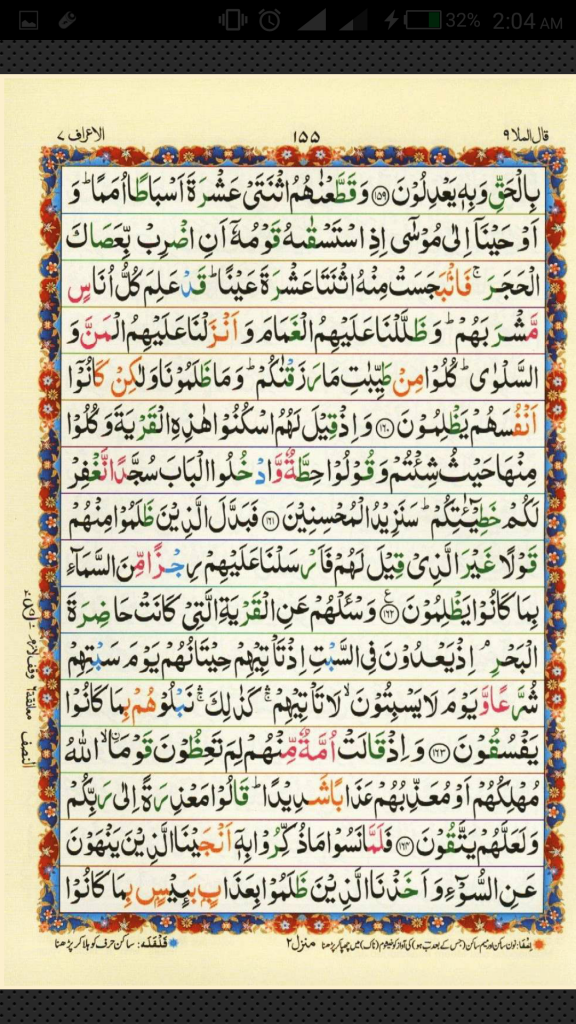 32% 2:04 AM
قال الملا ٩ ١٥٥ الاعراف ٧
بِالۡحَقِّ وَبِهٖ يَعۡدِلُوۡنَ ﴿۱۵۹﴾ وَقَطَّعۡنٰهُمُ اثۡنَتَىۡ عَشۡرَةَ اَسۡبَاطًا اُمَمًا‌ ؕ وَ
اَوۡحَيۡنَاۤ اِلٰى مُوۡسٰٓى اِذِ اسۡتَسۡقٰٮهُ قَوۡمُهٗۤ اَنِ اضۡرِبْ بِّعَصَاكَ
الۡحَجَرَ‌ ۚ فَاْنۢبَجَسَتۡ مِنۡهُ اثۡنَتَا عَشۡرَةَ عَيۡنًا‌ ؕ قَدۡ عَلِمَ كُلُّ اُنَاسٍ
مَّشۡرَبَهُمۡ‌ؕ وَظَلَّلۡنَا عَلَيۡهِمُ الۡغَمَامَ وَاَنۡزَلۡنَا عَلَيۡهِمُ الۡمَنَّ وَ
السَّلۡوٰى‌ؕ كُلُوۡا مِنۡ طَيِّبٰتِ مَا رَزَقۡنٰكُمۡ‌ؕ وَمَا ظَلَمُوۡنَا وَلٰـكِنۡ كَانُوۡۤا
اَنۡفُسَهُمۡ يَظۡلِمُوۡنَ ﴿۱۶۰﴾ وَاِذۡ قِيۡلَ لَهُمُ اسۡكُنُوۡا هٰذِهِ الۡقَرۡيَةَ وَكُلُوۡا
مِنۡهَا حَيۡثُ شِئۡتُمۡ وَقُوۡلُوۡا حِطَّةٌ وَّادۡخُلُوا الۡبَابَ سُجَّدًا نَّـغۡفِرۡ
لَـكُمۡ خَطِيْٓـٰٔــتِكُمۡ‌ ؕ سَنَزِيۡدُ الۡمُحۡسِنِيۡنَ ﴿۱۶۱﴾ فَبَدَّلَ الَّذِيۡنَ ظَلَمُوۡا مِنۡهُمۡ
قَوۡلًا غَيۡرَ الَّذِىۡ قِيۡلَ لَهُمۡ فَاَرۡسَلۡنَا عَلَيۡهِمۡ رِجۡزًا مِّنَ السَّمَآءِ
بِمَا كَانُوۡا يَظۡلِمُوۡنَ ﴿۱۶۲﴾ ع وَسۡـَٔـلۡهُمۡ عَنِ الۡقَرۡيَةِ الَّتِىۡ كَانَتۡ حَاضِرَةَ
الۡبَحۡرِ‌ۘ اِذۡ يَعۡدُوۡنَ فِى السَّبۡتِ اِذۡ تَاۡتِيۡهِمۡ حِيۡتَانُهُمۡ يَوۡمَ سَبۡتِهِمۡ
شُرَّعًا وَّيَوۡمَ لَا يَسۡبِتُوۡنَ‌ ۙ لَا تَاۡتِيۡهِمۡ‌ ۛۚ كَذٰلِكَ ۛۚ نَبۡلُوۡهُمۡ بِمَا كَانُوۡا
يَفۡسُقُوۡنَ ﴿۱۶۳﴾ وَاِذۡ قَالَتۡ اُمَّةٌ مِّنۡهُمۡ لِمَ تَعِظُوۡنَ قَوۡمَاۙ ۨاللّٰهُ
مُهۡلِكُهُمۡ اَوۡ مُعَذِّبُهُمۡ عَذَابًا شَدِيۡدًا‌ ؕ قَالُوۡا مَعۡذِرَةً اِلٰى رَبِّكُمۡ
وَلَعَلَّهُمۡ يَتَّقُوۡنَ ﴿۱۶۴﴾ فَلَمَّا نَسُوۡا مَا ذُكِّرُوۡا بِهٖۤ اَنۡجَيۡنَا الَّذِيۡنَ يَنۡهَوۡنَ
عَنِ السُّوۡۤءِ وَاَخَذۡنَا الَّذِيۡنَ ظَلَمُوۡا بِعَذَابٍۭ بَـئِيۡسٍۭ بِمَا كَانُوۡا
معانقة وقف لازم
النصف
اِخفا: نون ساکن اور میم ساکن (جس کے بعد ب ہو) کی آواز کو خیشوم (ناک) میں چھپا کر پڑھنا منزل ٢ قلقلہ: ساکن حرف کو ہلا کر پڑھنا